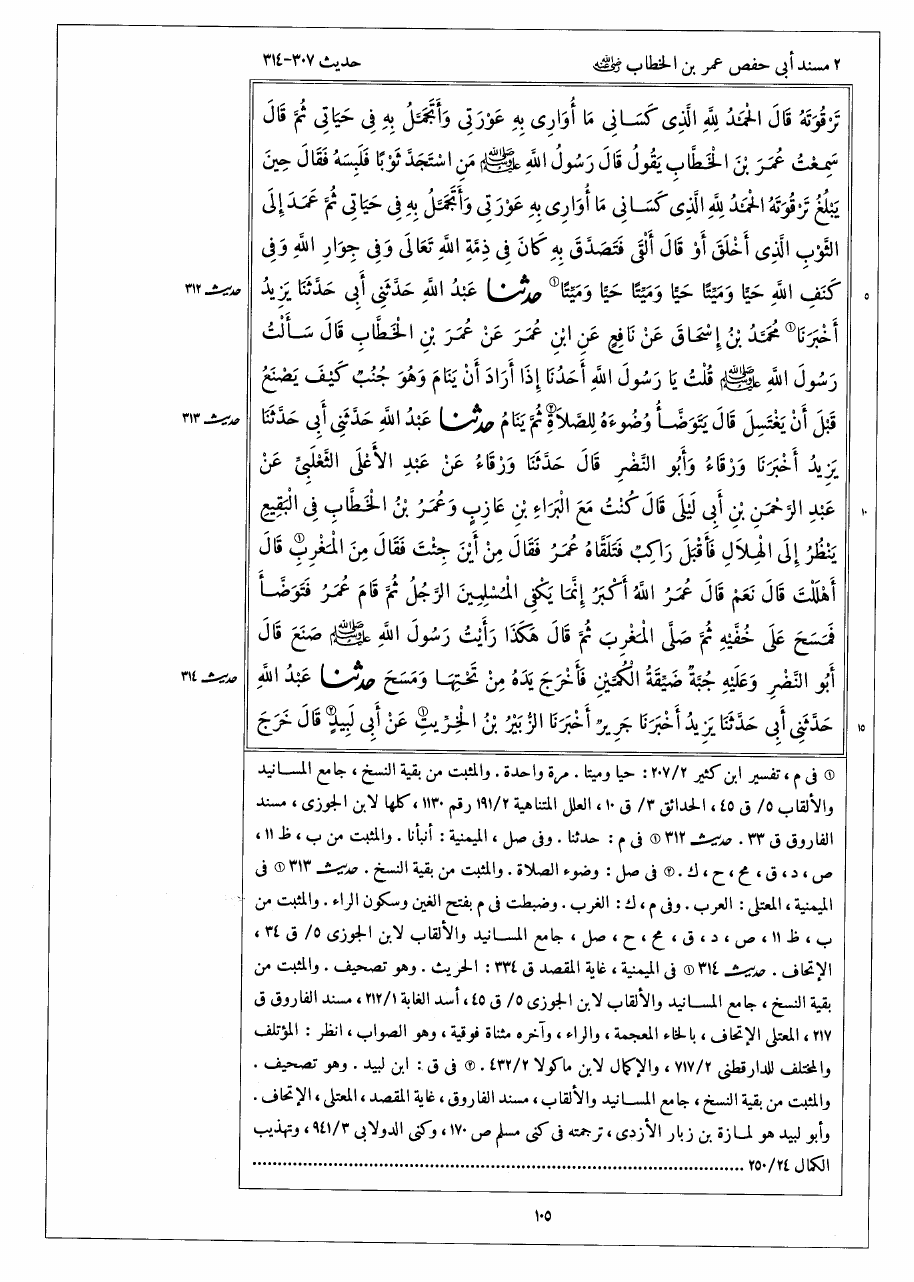 ٢ مسند أبي حفص عمر بن الخطاب رضي الله عنه حديث ٣٠٧-٣١٤
تَرْقُوَتَهُ قَالَ الْحَمْدُ لِلَّهِ الَّذِى كَسَانِى مَا أُوَارِى بِهِ عَوْرَتِى وَأَتَجَمَّلُ بِهِ فِى حَيَاتِى ثُمَّ قَالَ
سَمِعْتُ عُمَرَ بْنَ الْخَطَّابِ يَقُولُ قَالَ رَسُولُ اللَّهِ ﷺ مَنِ اسْتَجَدَّ ثَوْبًا فَلَبِسَهُ فَقَالَ حِينَ
يَبْلُغُ تَرْقُوَتَهُ الْحَمْدُ لِلَّهِ الَّذِى كَسَانِى مَا أُوَارِى بِهِ عَوْرَتِى وَأَتَجَمَّلُ بِهِ فِى حَيَاتِى ثُمَّ عَمَدَ إِلَى
الثَّوْبِ الَّذِى أَخْلَقَ أَوْ قَالَ أَلْقَى فَتَصَدَّقَ بِهِ كَانَ فِى ذِمَّةِ اللَّهِ تَعَالَى وَفِى جِوَارِ اللَّهِ وَفِى
٥ كَنَفِ اللَّهِ حَيًّا وَمَيِّتًا حَيًّا وَمَيِّتًا حَيًّا وَمَيِّتًا① حدثنا عَبْدُ اللَّهِ حَدَّثَنِى أَبِى حَدَّثَنَا يَزِيدُ حديث ٣١٢
أَخْبَرَنَا① مُحَمَّدُ بْنُ إِسْحَاقَ عَنْ نَافِعٍ عَنِ ابْنِ عُمَرَ عَنْ عُمَرَ بْنِ الْخَطَّابِ قَالَ سَأَلْتُ
رَسُولَ اللَّهِ ﷺ قُلْتُ يَا رَسُولَ اللَّهِ أَحَدُنَا إِذَا أَرَادَ أَنْ يَنَامَ وَهُوَ جُنُبٌ كَيْفَ يَصْنَعُ
قَبْلَ أَنْ يَغْتَسِلَ قَالَ يَتَوَضَّأُ وُضُوءَهُ لِلصَّلاَةِ② ثُمَّ يَنَامُ حدثنا عَبْدُ اللَّهِ حَدَّثَنِى أَبِى حَدَّثَنَا حديث ٣١٣
يَزِيدُ أَخْبَرَنَا وَرْقَاءُ وَأَبُو النَّضْرِ قَالَ حَدَّثَنَا وَرْقَاءُ عَنْ عَبْدِ الأَعْلَى الثَّعْلَبِىِّ عَنْ
١٠ عَبْدِ الرَّحْمَنِ بْنِ أَبِى لَيْلَى قَالَ كُنْتُ مَعَ الْبَرَاءِ بْنِ عَازِبٍ وَعُمَرُ بْنُ الْخَطَّابِ فِى الْبَقِيعِ
يَنْظُرُ إِلَى الْهِلاَلِ فَأَقْبَلَ رَاكِبٌ فَتَلَقَّاهُ عُمَرُ فَقَالَ مِنْ أَيْنَ جِئْتَ فَقَالَ مِنَ الْمَغْرِبِ① قَالَ
أَهْلَلْتَ قَالَ نَعَمْ قَالَ عُمَرُ اللَّهُ أَكْبَرُ إِنَّمَا يَكْفِى الْمُسْلِمِينَ الرَّجُلُ ثُمَّ قَامَ عُمَرُ فَتَوَضَّأَ
فَمَسَحَ عَلَى خُفَّيْهِ ثُمَّ صَلَّى الْمَغْرِبَ ثُمَّ قَالَ هَكَذَا رَأَيْتُ رَسُولَ اللَّهِ ﷺ صَنَعَ قَالَ
أَبُو النَّضْرِ وَعَلَيْهِ جُبَّةٌ ضَيِّقَةُ الْكُمَّيْنِ فَأَخْرَجَ يَدَهُ مِنْ تَحْتِهَا وَمَسَحَ حدثنا عَبْدُ اللَّهِ حديث ٣١٤
١٥ حَدَّثَنِى أَبِى حَدَّثَنَا يَزِيدُ أَخْبَرَنَا جَرِيرٌ أَخْبَرَنَا الزُّبَيْرُ بْنُ الْخِرِّيتِ① عَنْ أَبِى لَبِيدٍ② قَالَ خَرَجَ
① فى م ، تفسير ابن كثير ٢٠٧/٢ : حيا وميتا . مرة واحدة . والمثبت من بقية النسخ ، جامع المسانيد
والألقاب ٥/ ق ٤٥ ، الحدائق ٣/ ق ١٠ ، العلل المتناهية ١٩١/٢ رقم ١١٣٠ ، كلها لابن الجوزى ، مسند
الفاروق ق ٣٣ . حديث ٣١٢ ① فى م : حدثنا . وفى صل ، الميمنية : أنبأنا . والمثبت من ب ، ظ ١١ ،
ص ، د ، ق ، مح ، ح ، ك . ② فى صل : وضوء الصلاة . والمثبت من بقية النسخ . حديث ٣١٣ ① فى
الميمنية ، المعتلى : العرب . وفى م ، ك : الغرب . وضبطت فى م بفتح الغين وسكون الراء . والمثبت من
ب ، ظ ١١ ، ص ، د ، ق ، مح ، ح ، صل ، جامع المسانيد والألقاب لابن الجوزى ٥/ ق ٣٤ ،
الإتحاف . حديث ٣١٤ ① فى الميمنية ، غاية المقصد ق ٣٣٤ : الحريث . وهو تصحيف . والمثبت من
بقية النسخ ، جامع المسانيد والألقاب لابن الجوزى ٥/ ق ٤٥ ، أسد الغابة ٢١٢/١ ، مسند الفاروق ق
٢١٧ ، المعتلى الإتحاف ، بالخاء المعجمة ، والراء ، وآخره مثناة فوقية ، وهو الصواب ، انظر : المؤتلف
والمختلف للدارقطنى ٧١٧/٢ ، والإكمال لابن ماكولا ٤٣٢/٢ . ② فى ق : ابن لبيد . وهو تصحيف .
والمثبت من بقية النسخ ، جامع المسانيد والألقاب ، مسند الفاروق ، غاية المقصد ، المعتلى ، الإتحاف .
وأبو لبيد هو لمازة بن زبار الأزدى ، ترجمته فى كنى مسلم ص ١٧٠ ، وكنى الدولابى ٩٤١/٣ ، وتهذيب
الكمال ٢٥٠/٢٤ ..........
١٠٥